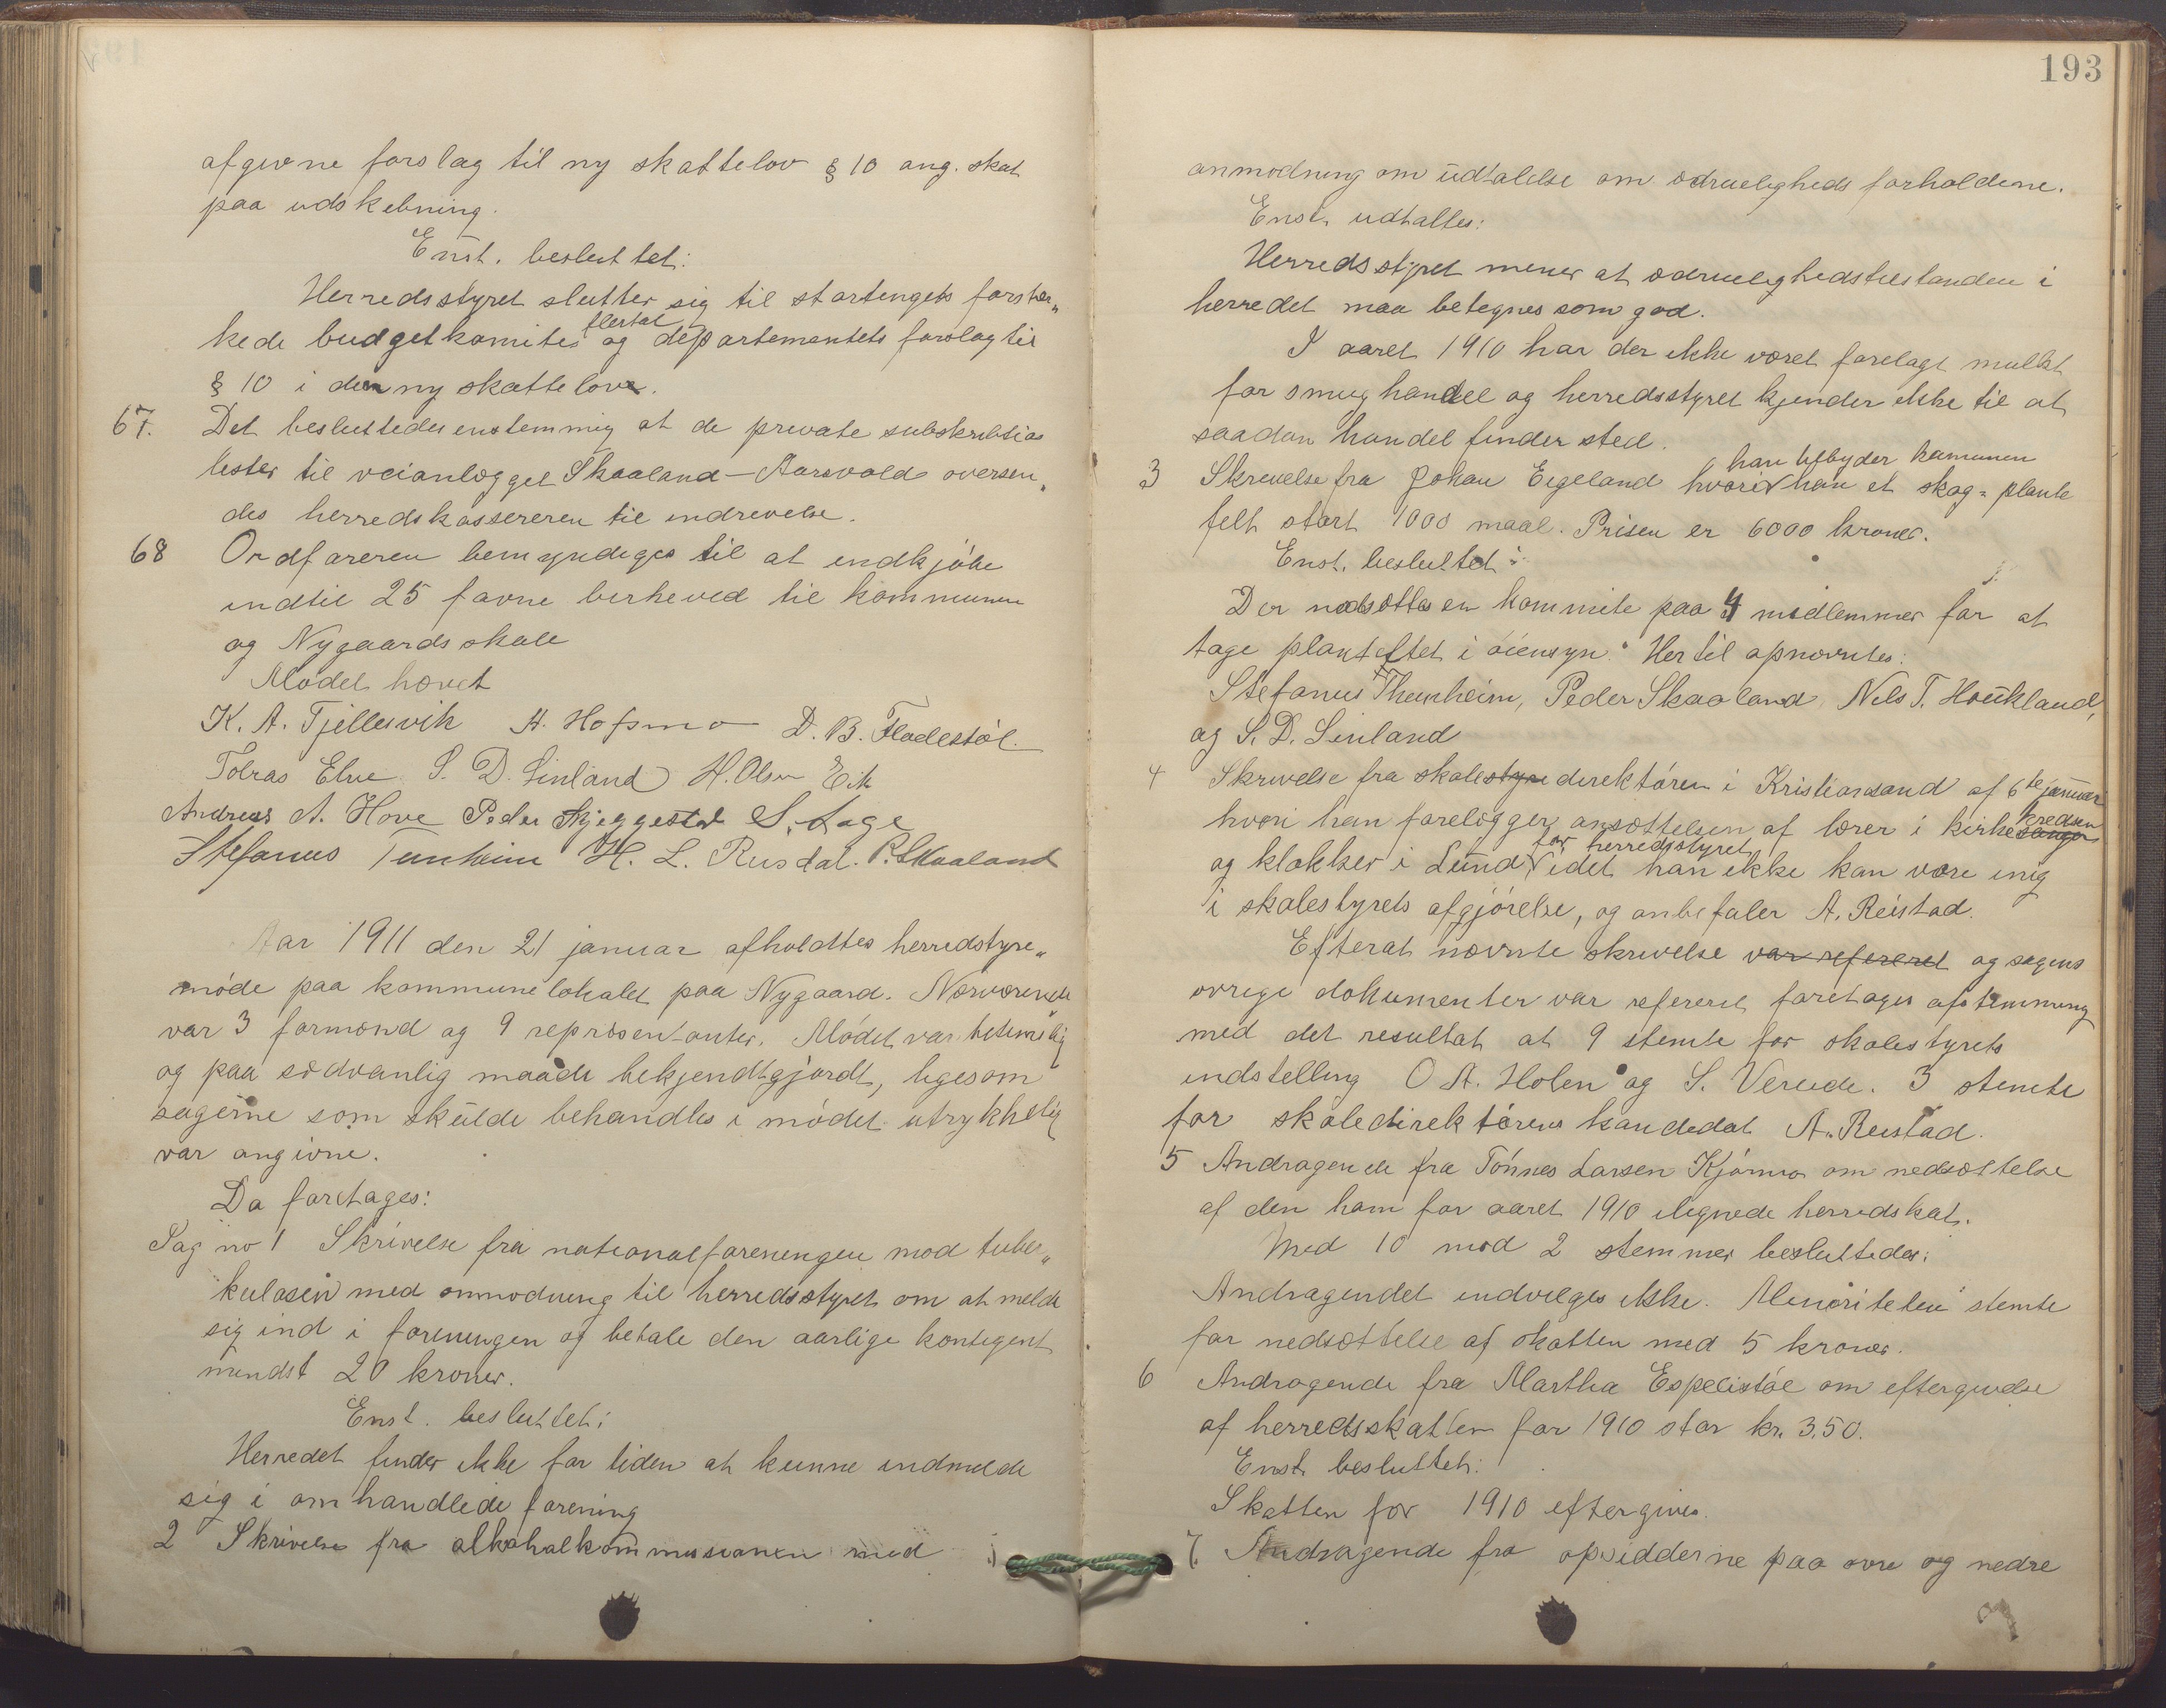 afgivne forslag til ny skattelov § 10 ang. skat
paa udskibning.
Enst. besluttet:
Herredsstyret slutter sig til stortingets forstær„
kede budgetkomites flertal og departementets forslag til
§ 10 i den ny skattelov.
67. Det besluttedes enstemmig at de private subskribtios
lister til veianlægget Skaaland-Aarsvold oversen„
des herredskassereren til indrivelse.
68 Ordføreren bemyndiges til at indkjöbe
indtil 25 favne birkeved til kommunen
og Nygaards skole
Mødet hævet
K. A. Tjellesvik H. Hofsmo D. B. Fladestöl.
Tobias Elve S. D. Sinland H. Olsen Eik
Andreas A. Hove Peder Skjeggestad S. Lage
Stefanus Tunheim H. L. Rusdal. P. Skaaland
Aar 1911 den 21 januar afholdtes herredstyre„
möde paa kommunelokalet paa Nygaard. Nærværende
var 3 formænd og 9 repræsentanter. Mödet var betimelig
og paa sædvanlig maade bekjendtgjordt, ligesom
sagerne som skulde behandles i mödet utrykkelig
var angivne.
Da foretages:
Sag no 1 Skrivelse fra nationalforeningen mod tuber„
kulosen med anmodning til herredsstyret om at melde
sig ind i foreningen og betale den aarlige kontigent
mindst 20 kroner.
Enst. besluttet:
Herredet finder ikke for tiden at kunne indmelde
sig i omhandlede forening
2 Skrivelse fra alkoholkommissionen med
193
anmodning om udtalelse om ædrueligheds forholdene.
Enst. udtaltes:
Herredsstyret mener at ædruelighedstilstanden i
herredet maa betegnes som god.
I aaret 1910 har der ikke været forelagt mulkt
for smughandel og herredsstyret kjender ikke til at
saadan handel finder sted.
han tilbyder kamunen
3 Skrivelse fra Johan Eigeland hvori han et skog=plante
felt stort 1000 maal. Prisen er 6000 kroner.
Enst. besluttet:
Der nedsættes en kommite paa 4 medlemmer for at
tage plantefltet i öiensyn. Hertil opnævntes:
Stefanus Thunheim, Peder Skaaland, Nils T. Houkland,
og S. D. Sinland
4 Skrivelse fra skolestyre direktören i Kristiansand af 6te januar
hvori han forelægger ansættelsen af lærer i kirkesanger kredsen
og klokker i Lund for herredsstyret idet han ikke kan være enig
i skolestyrets afgjörelse, og anbefaler A. Reistad.
Efterat nævnte skrivelse var refereret og sagens
øvrige dokumenter var refereret foretages afstemming
med det resultat at 9 stemte for skolestyrets
indstelling O A. Holen og S. Vereide. 3 stemte
for skoledirektörens kandedat A. Reistad.
5 Andragende fra Tönnes Larsen Kjörmo om nedsættelse
af den ham for aaret 1910 ilignede herredskat.
Med 10 mod 2 stemmer besluttedes:
Andragendet indvilges ikke. Minoriteten stemte
for nedsættelse af skatten med 5 kroner.
6 Andragende fra Martha Espelistöl om eftergivelse
af herredsskatten for 1910 stor kr. 3.50.
Enst. besluttet:
Skatten for 1910 eftergives.
7. Andragende fra opsidderne paa øvre og nedre